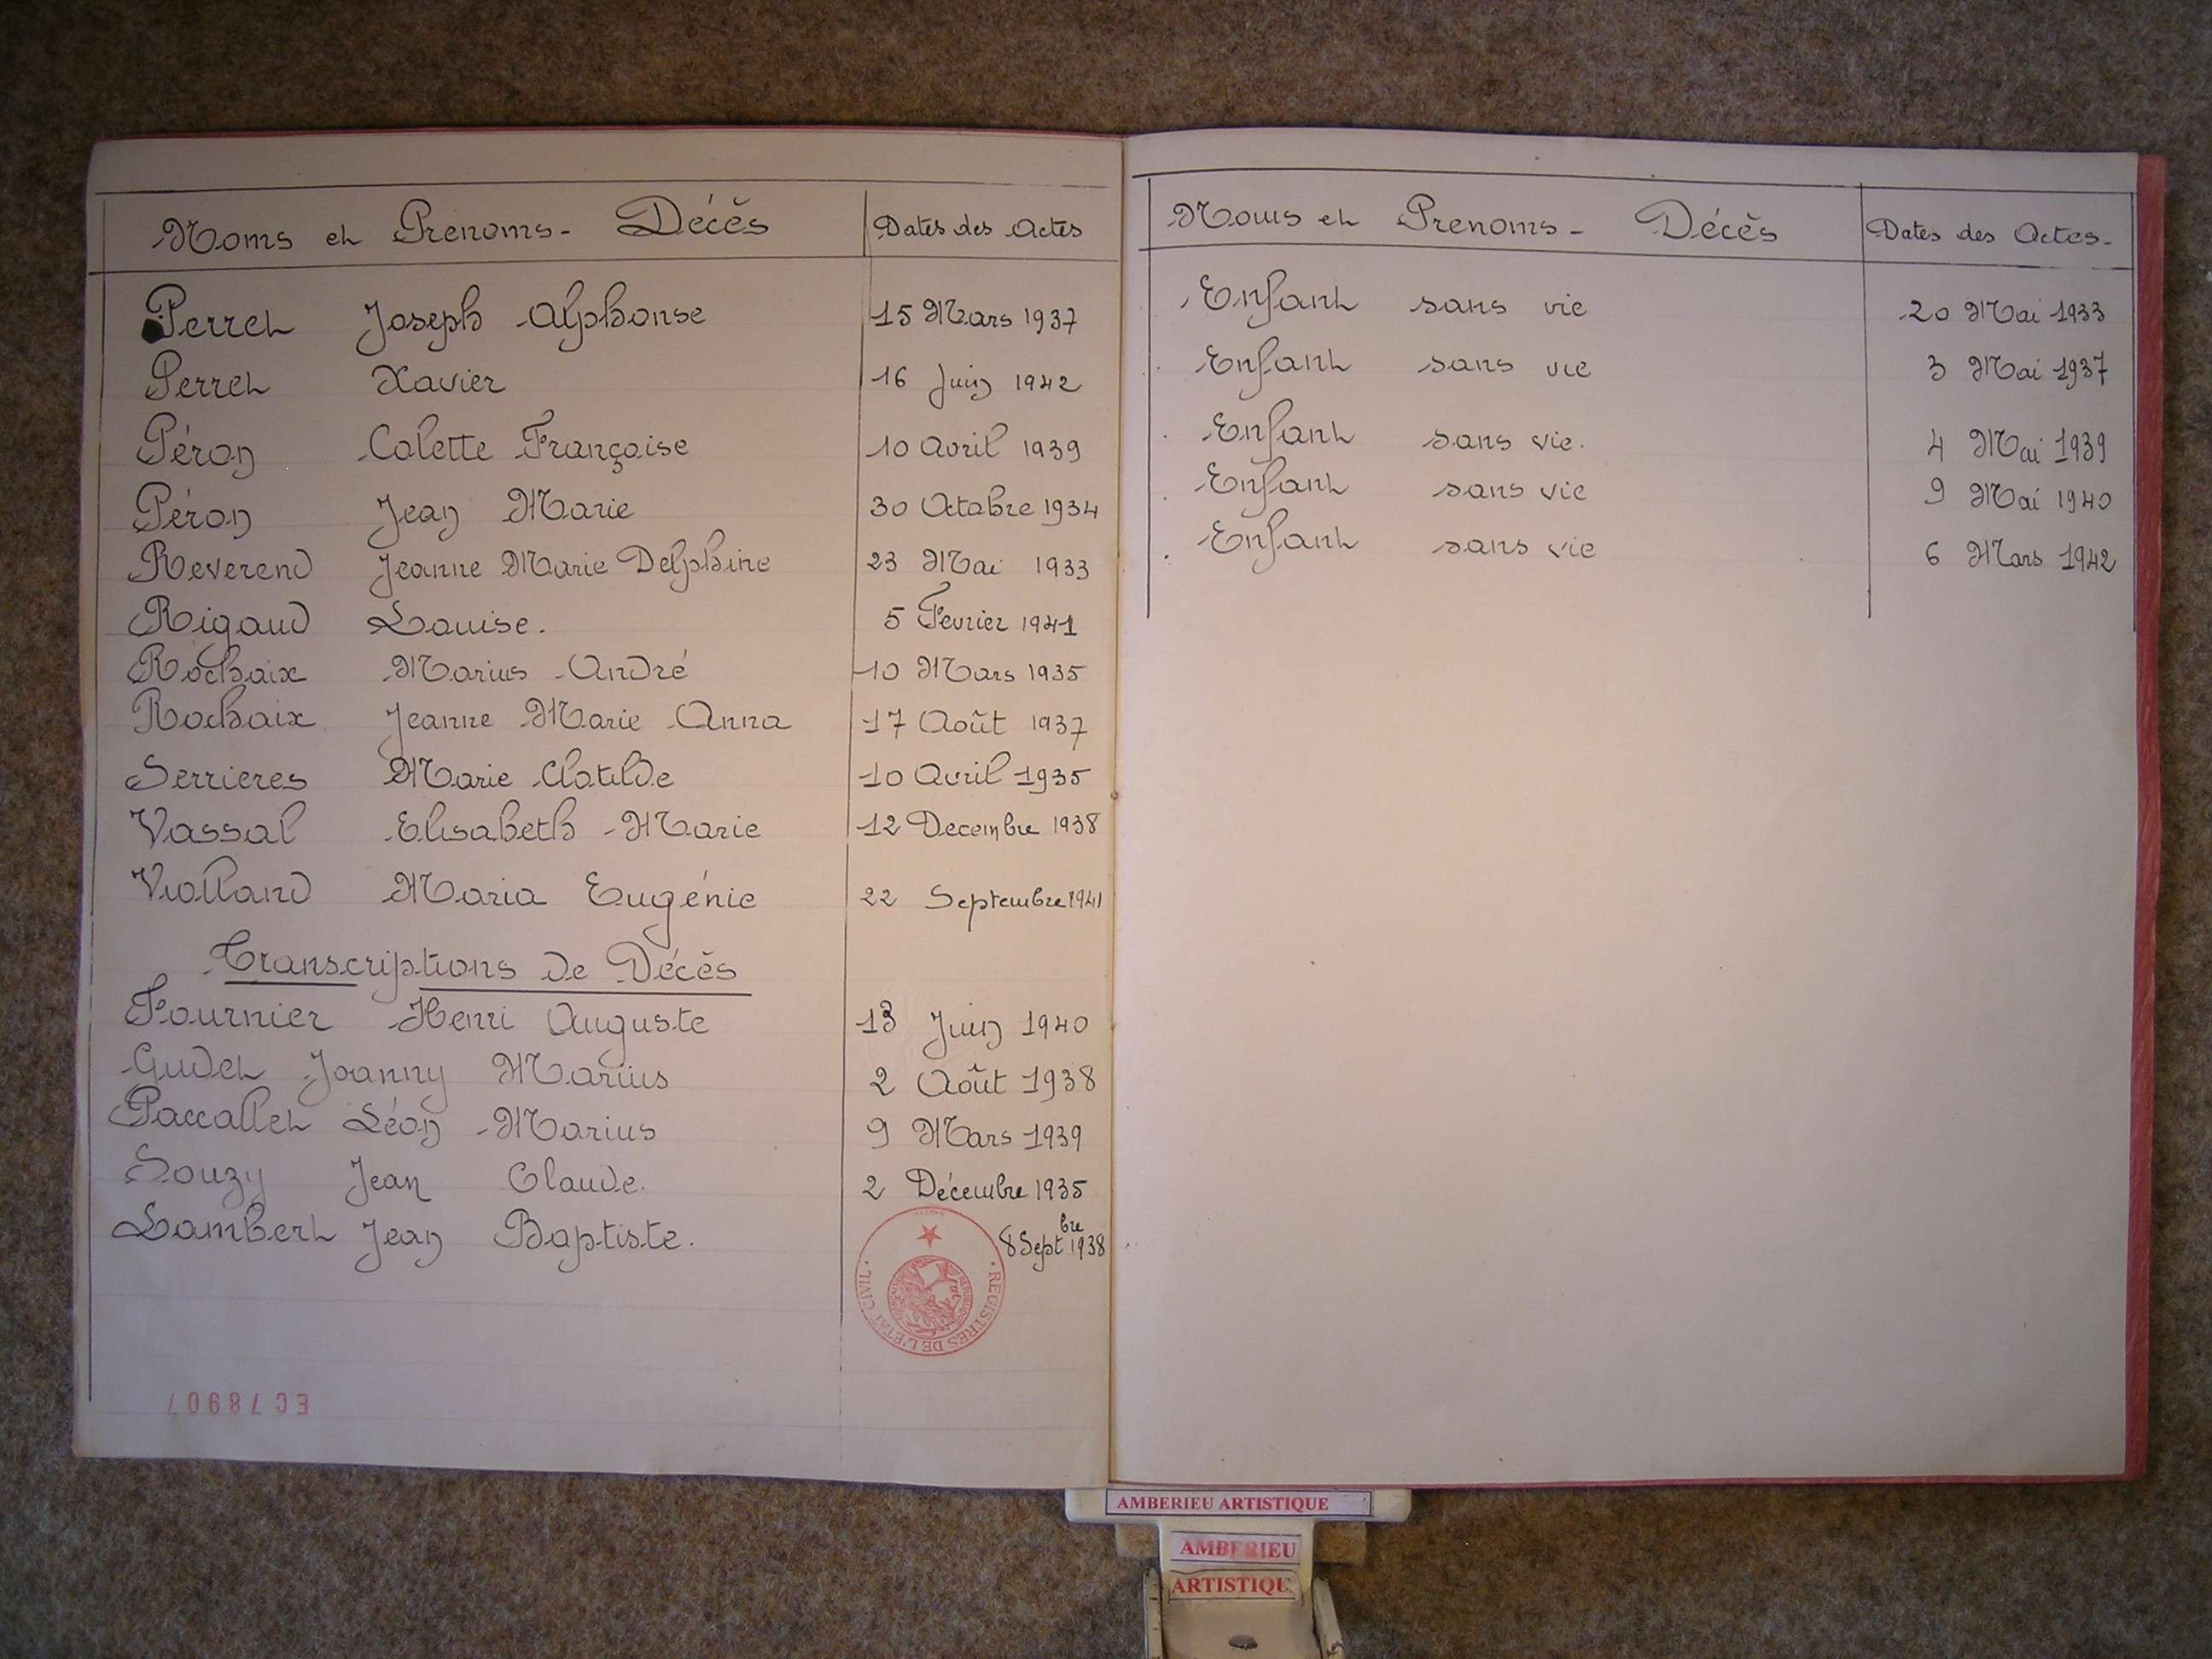 Noms et Prenoms - Décès Dates des Actes
Perret Joseph Alphonse 15 Mars 1937
Perret Xavier 16 Juin 1942
Péron Colette Françoise 10 Avril 1939
Péron Jean Marie 30 Octobre 1934
Reverend Jeanne Marie Delphine 23 Mai 1933
Rigaud Louise. 5 Fevrier 1941
Rochaix Marius André 10 Mars 1935
Rochaix Jeanne Marie Anna 17 Août 1937
Serrieres Marie Clotilde 10 Avril 1935
Vassal Elisabeth Marie 12 Decembre 1938
Violland Maria Eugénie 22 Septembre 1941
Transcriptions de Décès
Fournier Henri Auguste 13 Juin 1940
Gudet Joanny Marius 2 Août 1938
Paccallet Léon Marius 9 Mars 1939
Souzy Jean Claude. 2 Décembre 1935
Lambert Jean Baptiste. 8 Septbre 1938
REGISTRES DE L'ETAT CIVIL
EC 78907
Noms et Prenoms - Décès Dates des Actes -
Enfant sans vie 20 Mai 1933
Enfant sans vie 3 Mai 1937
Enfant sans vie. 4 Mai 1939
Enfant sans vie 9 Mai 1940
Enfant sans vie 6 Mars 1942
AMBERIEU ARTISTIQUE
AMBERIEU
ARTISTIQU